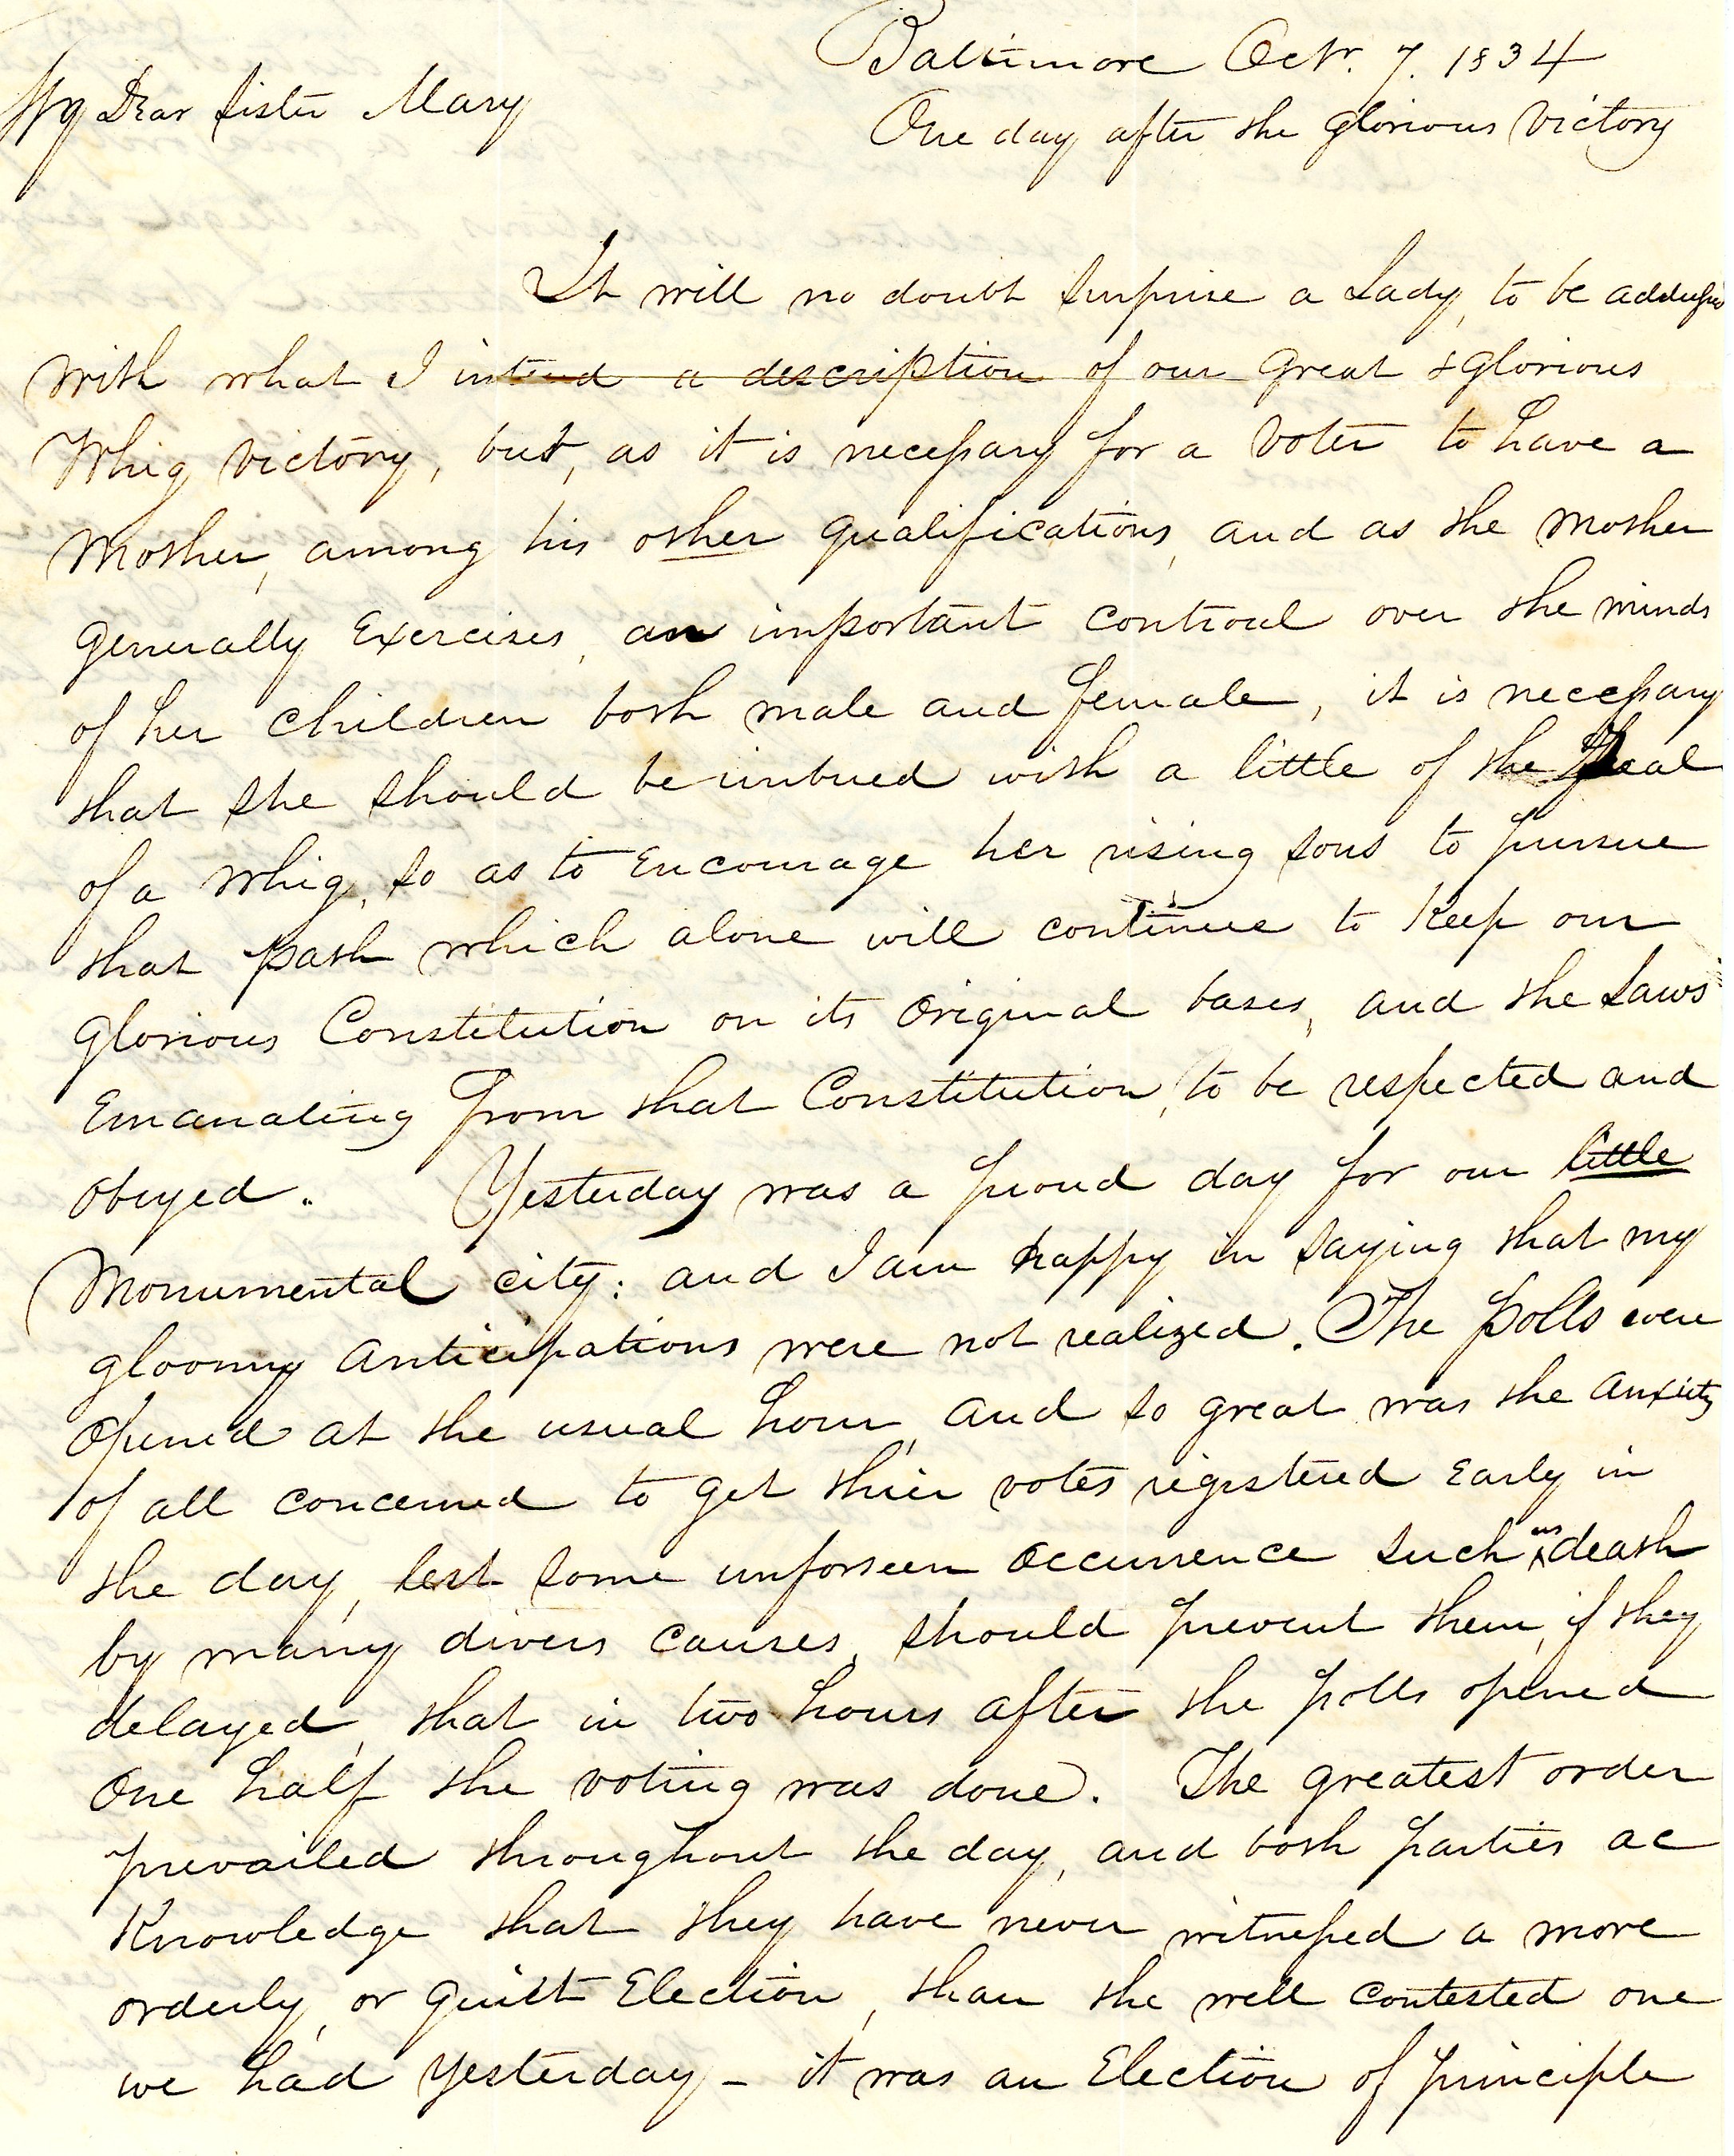 Baltimore Octr. 7. 1834
My Dear Sister Mary
One day after the glorious Victory
It will no doubt surprise a Lady, to be addressed
with what I intend a description of our great & glorious
Whig victory, but, as it is necessary for a voter to have a
Mother, among his other qualifications, and as the Mother
generally Exercises, an important controul over the minds
of her children both male and female, it is necessary
that she should be imbued with a little of the Zeal
of a Whig, so as to Encourage her rising sons to pursue
that path which alone will continue to Keep our
glorious Constitution on its Original bases, and the Laws
Emanating from that Constitution, to be respected and
obeyed. Yesterday was a proud day for our little
Monumental city: and I am happy in saying that my
gloomy Anticipations were not realized. The Polls were
Opened at the usual hour, and so great was the Anxiety
of all concerned to get thier votes registered Early in
the day, lest some unforseen Occurrence such as death
by many divers causes, should prevent them, if they
delayed, that in two hours after the polls opened
One half the voting was done. The greatest order
prevailed throughout the day, and both parties ac
Knowledge that they have never witnessed a more
orderly, or quiet Election, than the well contested one
we had Yesterday - it was an Election of principle